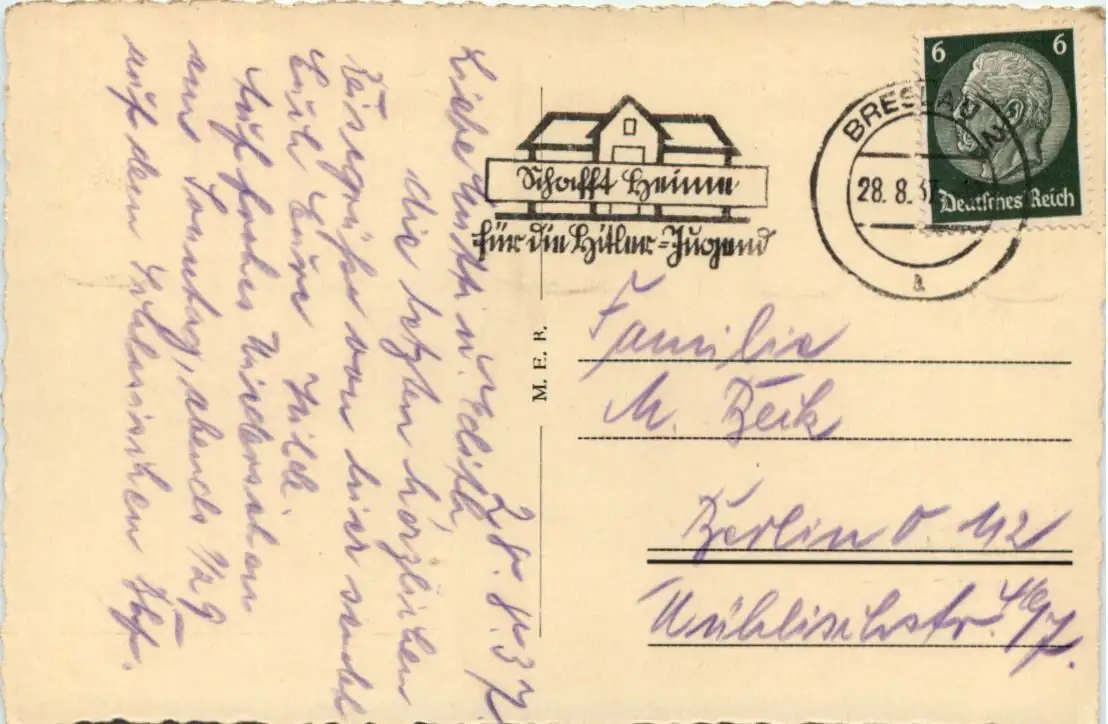 28.8.37
Liebe Mutti u. Edith,
die letzten herzlichen
Reisegrüße von hier sendet
Euch Eure Hilde
Auf frohes Wiedersehen
am Sonntag, abends 1/2 9
auf dem Schlesischen Bhf.
Schafft Heime
für die Hitler-Jugend
BRESLAU 2
28.8.37
a
6 6
Deutsches Reich
M. E. R.
Familie
M. Beik
Berlin O. 112
Mühlischstr.